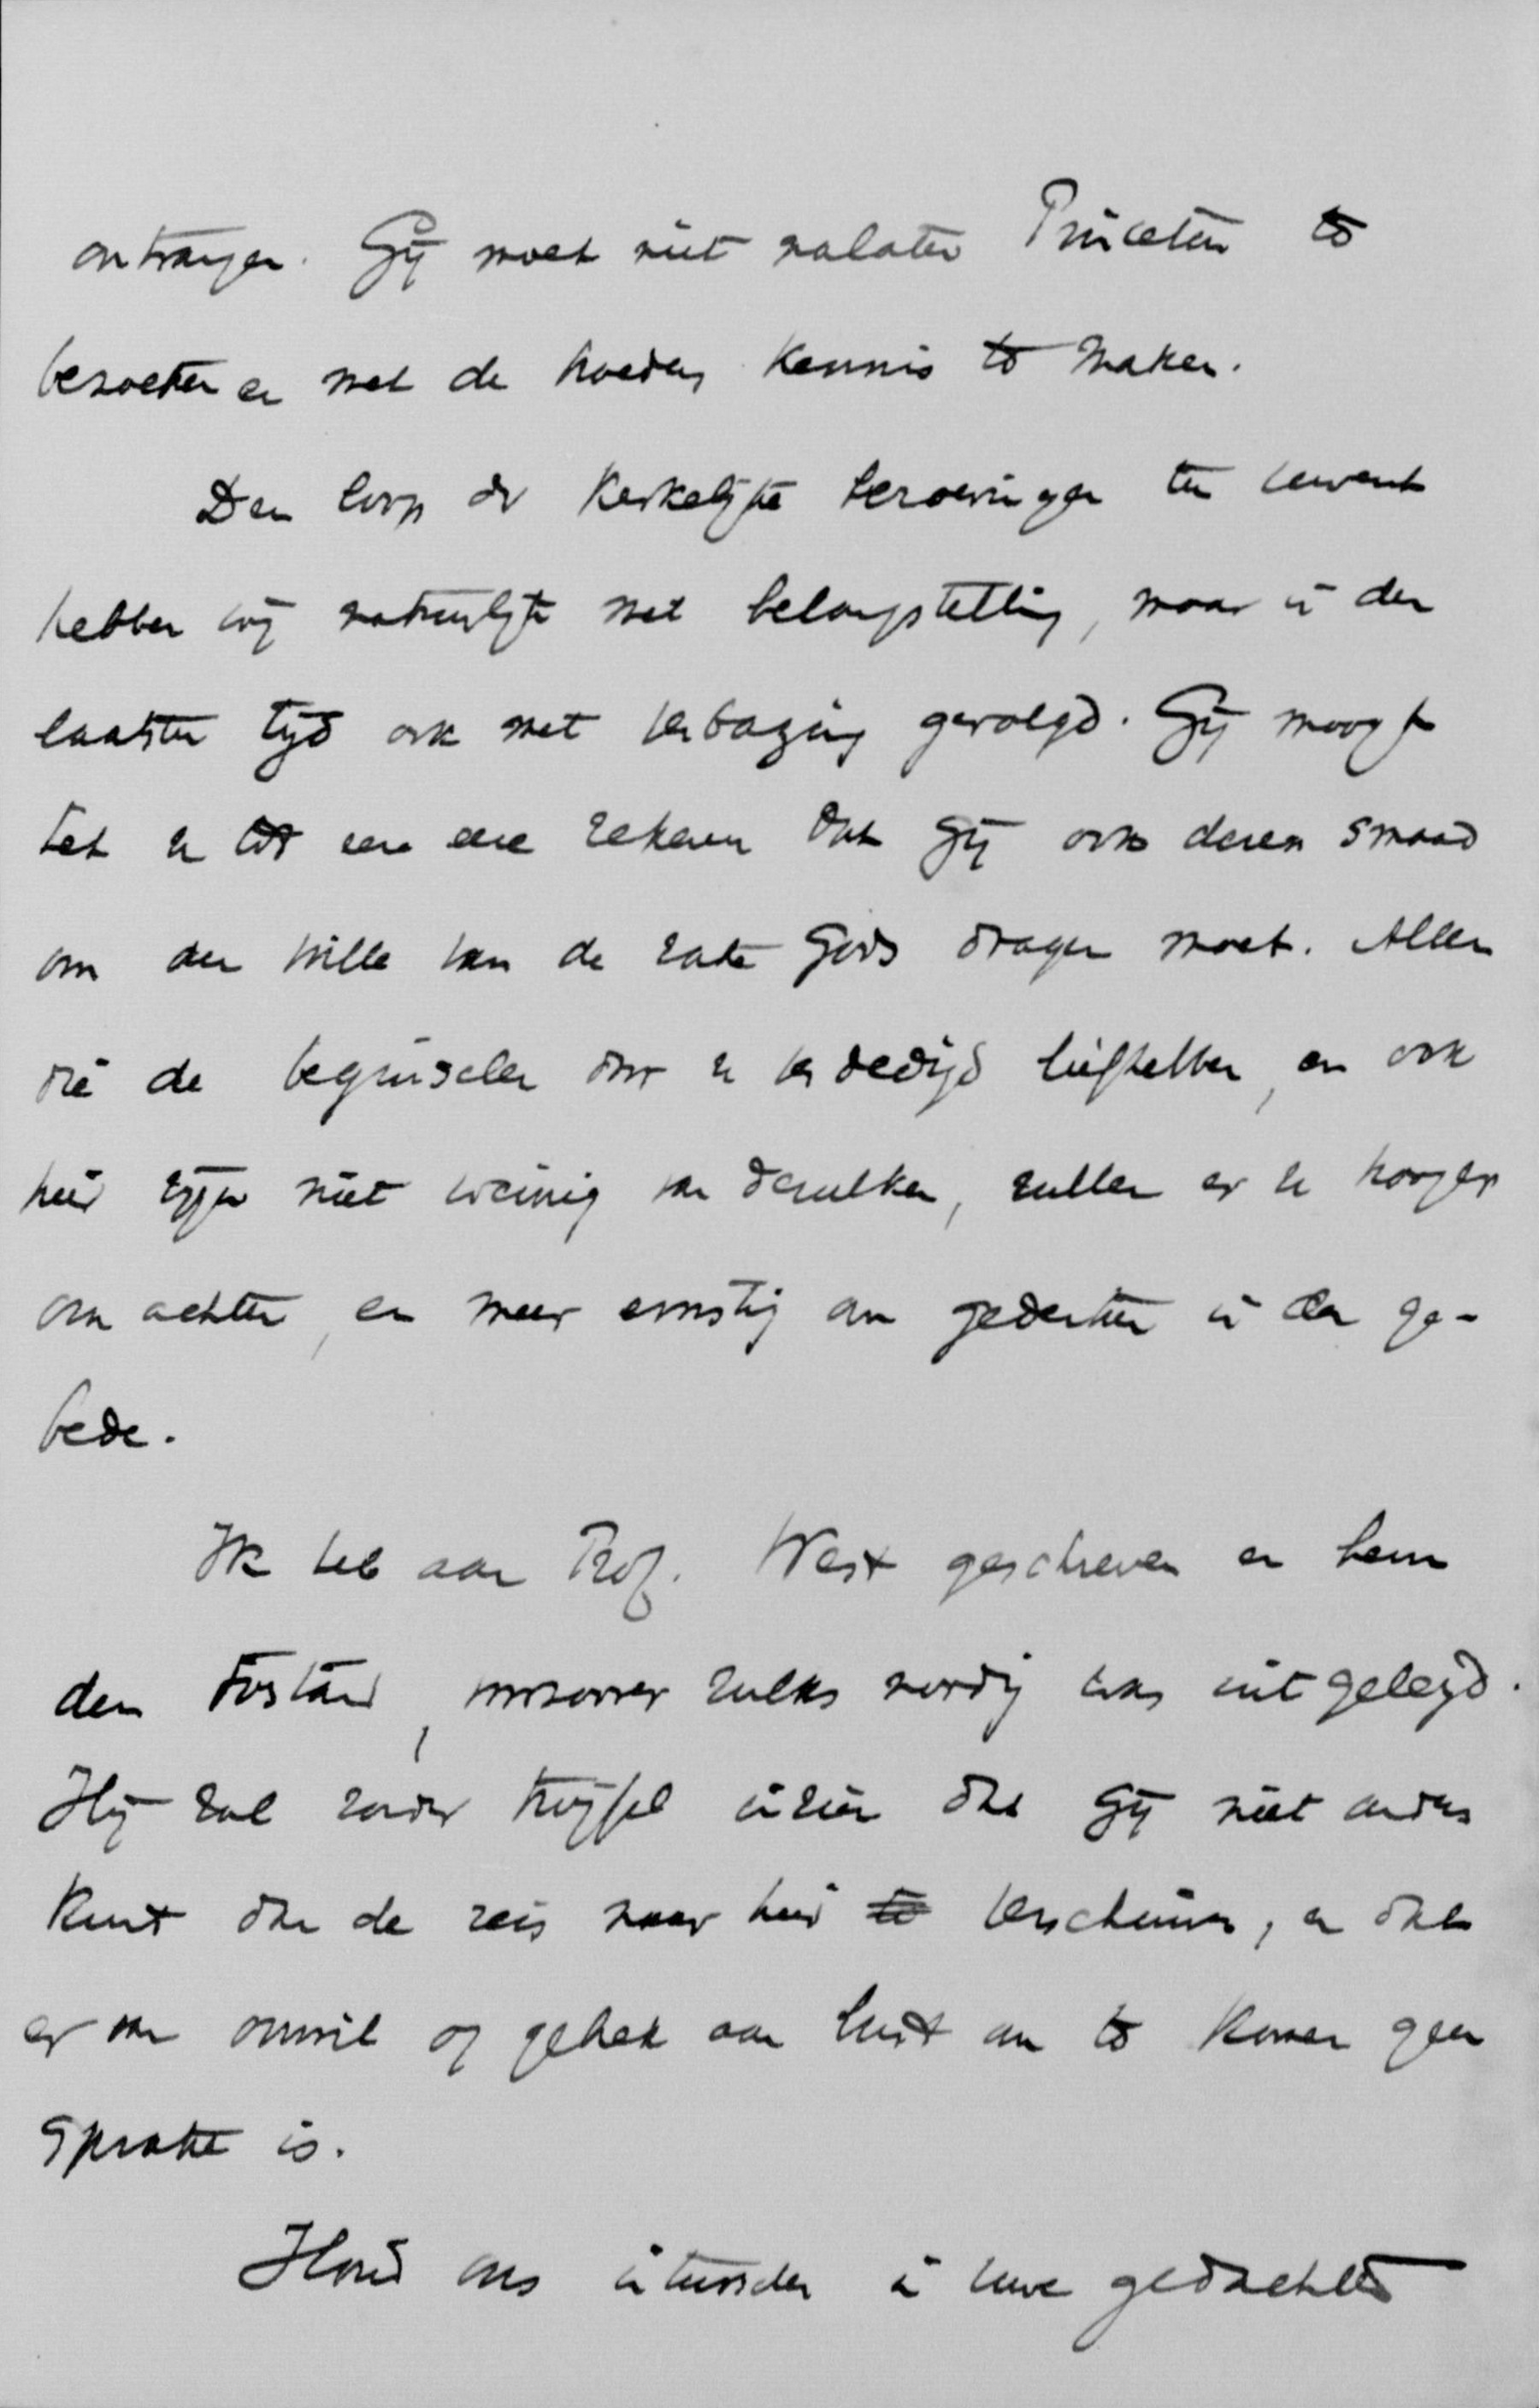 ontvangen. Gij moet niet nalaten Princeton te
bezoeken en met de broeders kennis te maken.
Den loop der Kerkelijke beroeringen ten uwent
hebben wij natuurlijk met belangstelling, maar in den
laatsten tijd ook met verbazing gevolgd. Gij moogt
het u tot een eere rekenen dat gij ook dezen smaad
om den wille van de zake Gods dragen moet. Allen
die de beginselen door u verdedigd liefhebben, en ook
hier zijn niet weinig van dezulken, zullen er u hooger
om achten, en meer ernstig om gedenken in den ge-
bede.
Ik heb aan Prof. West geschreven en hem
den toestand, voorzoover zulks noodig was uitgelegd.
Hij zal zonder twijfel inzien dat gij niet anders
kunt dan de reis naar hier te verschuiven, en dat
er van onwil of gebrek aan lust om te komen geen
sprake is.
Houd ons intusschen in uwe gedachten